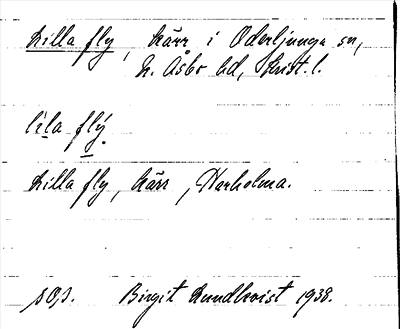 Lilla fly, kärr i Oderljunga sn,
N. Åsbo hd, Krist. l.
lìla flý.
Lilla fly, kärr, Harholma.
SO, Birgit Lundkvist 1938.